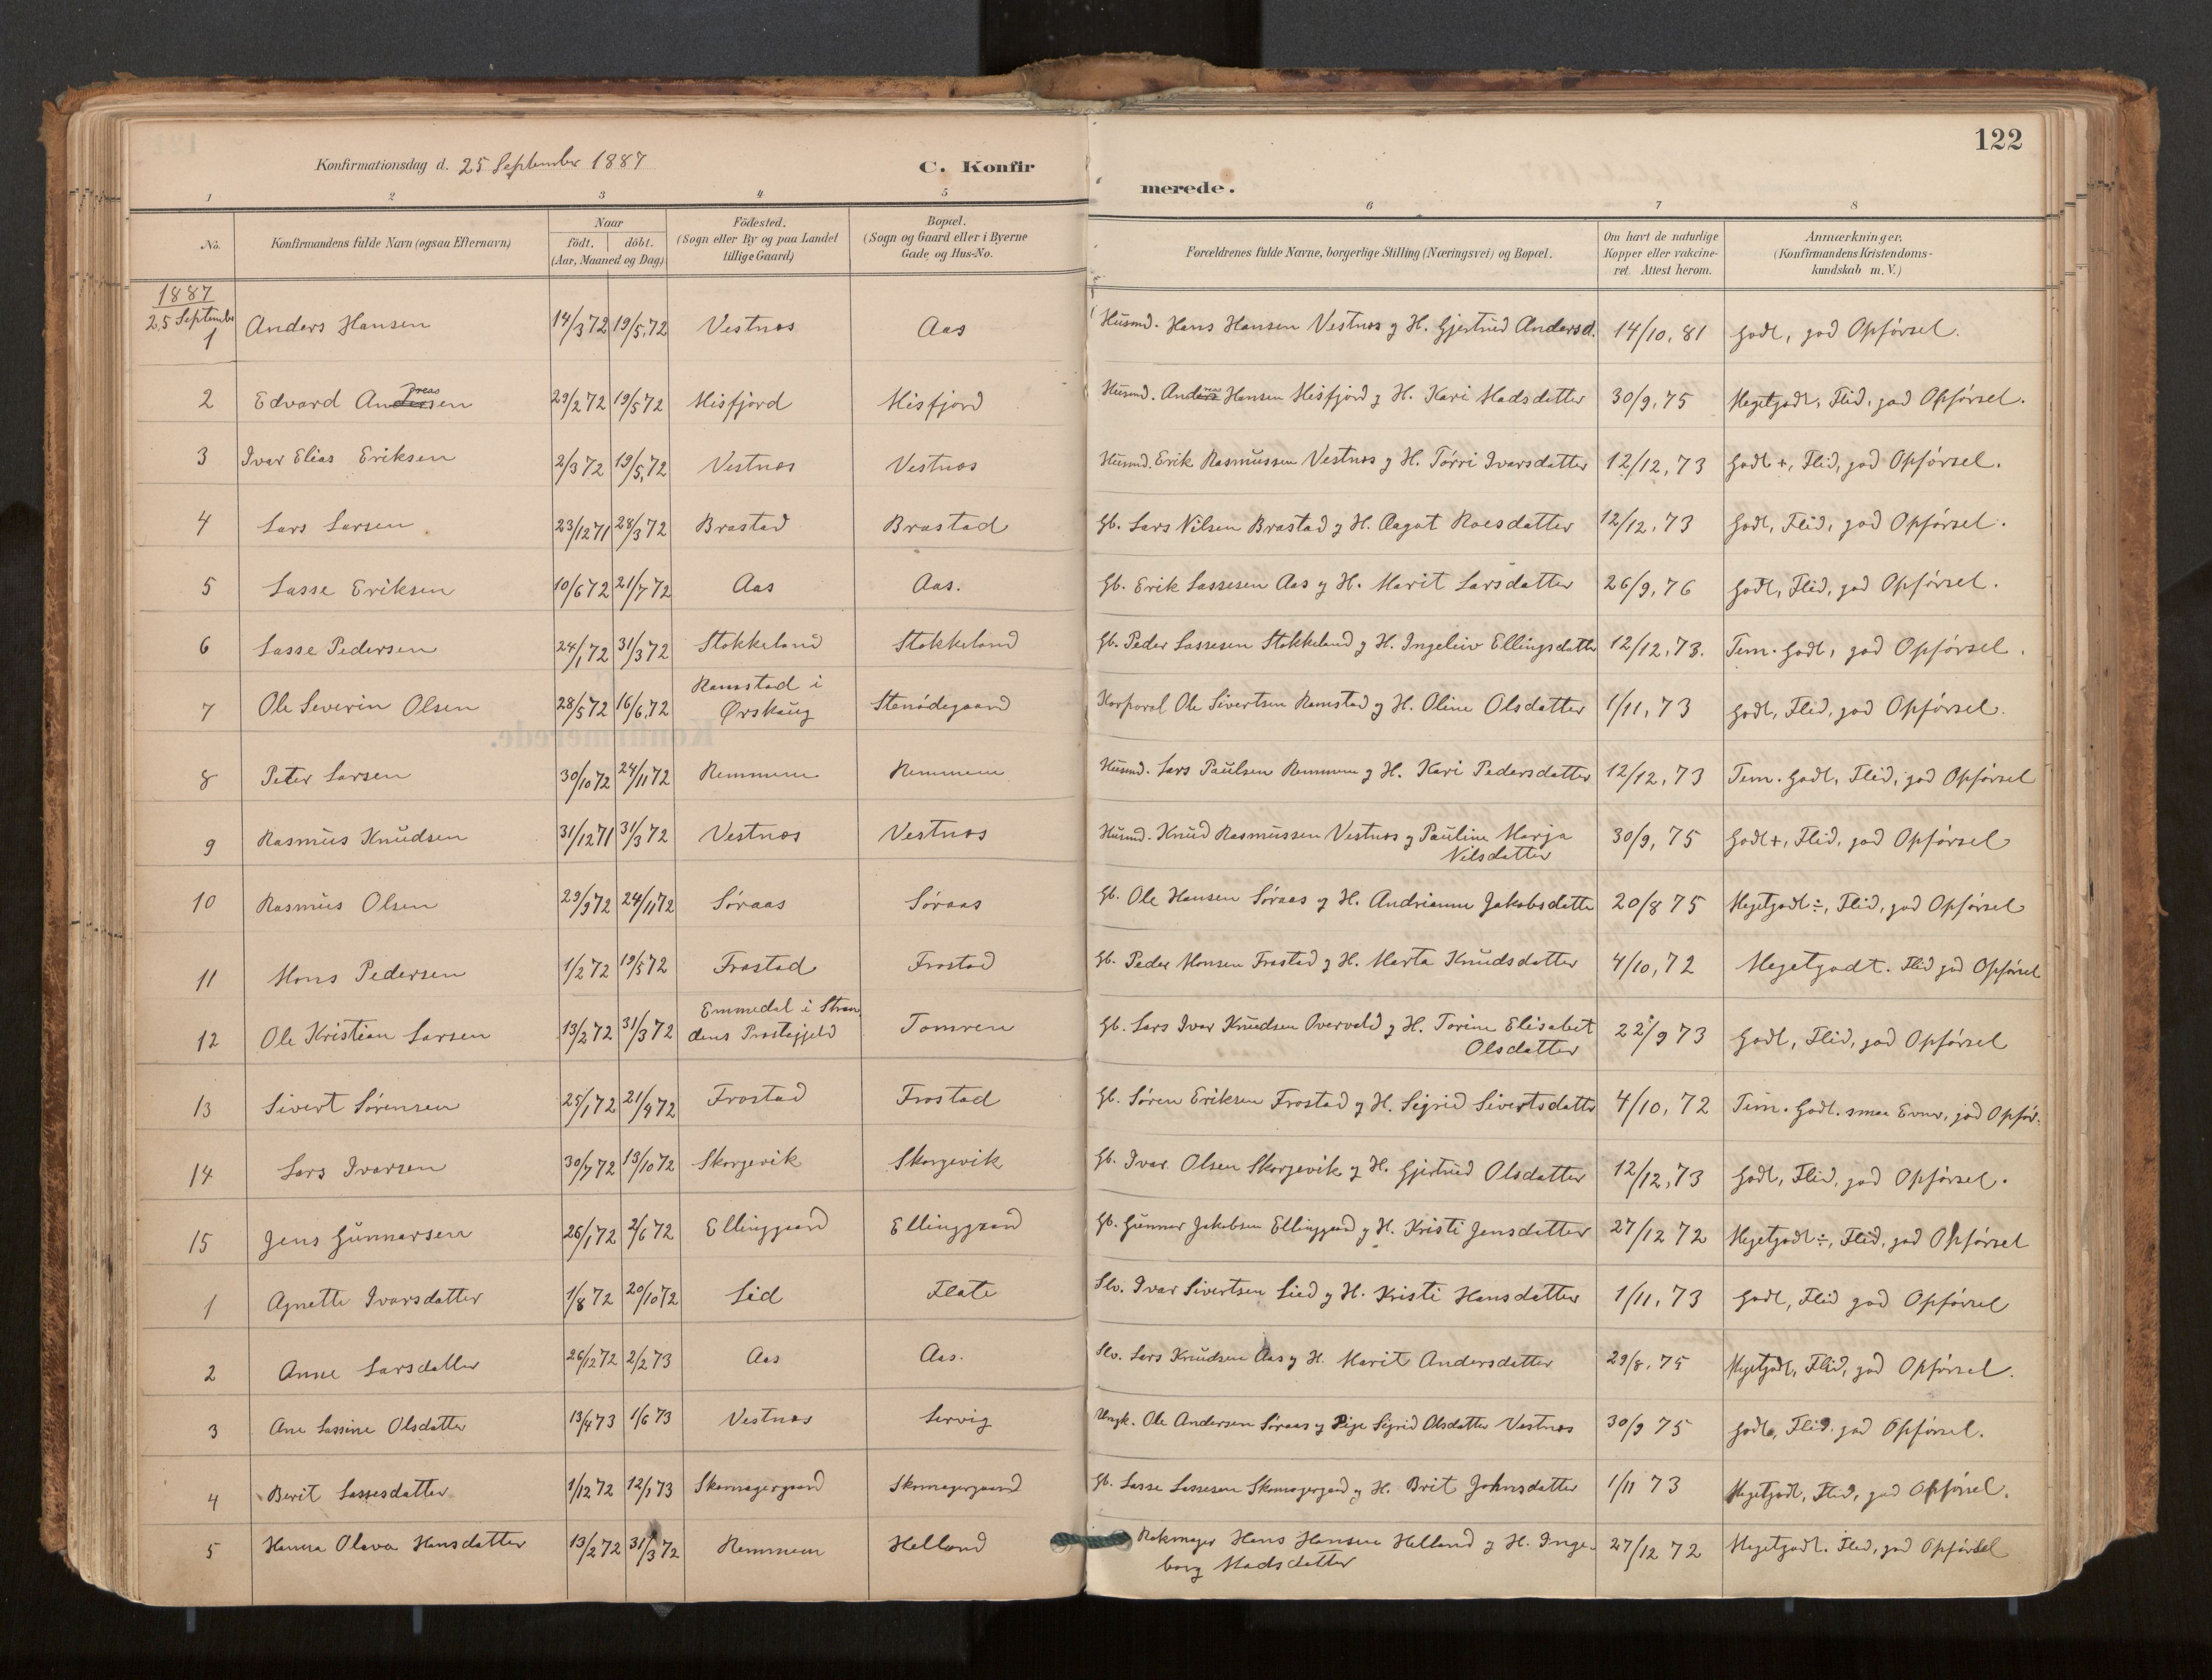 122
Konfirmationsdag d. 25 September 1887
C. Konfirmerede.
1 2 3 4 5 6 7 8
No. Konfirmandens fulde Navn (ogsaa Efternavn) Naar födt. döbt. (Aar, Maaned og Dag) Födested. (Sogn eller By og paa Landet tillige Gaard) Bopæl. (Sogn og Gaard eller i Byerne Gade og Hus-No. Forældrenes fulde Navne, borgerlige Stilling (Næringsvei) og Bopæl. Om havt de naturlige Kopper eller vakcineret. Attest herom. Anmærkninger. (Konfirmandens Kristendomskundskab m. V.)
1887
25 September
1 Anders Hansen 14/3 72 19/5, 72 Vestnæs Aas Husmd. Hans Hansen Vestnæs og H. Gjertrud Andersd. 14/10, 81 Godt, god Opførsel.
2 Edvard Andreasen 29/2 72 19/5 72 Misfjord Misfjord Husmd. Andreas Hansen Misfjord og H. Kari Madsdatter 30/9, 75 Megetgodt, Flid, god Opførsel.
3 Ivar Elias Eriksen 2/3 72 19/5, 72 Vestnæs Vestnæs Husmd. Erik Rasmussen Vestnæs og H. Tørri Ivarsdatter 12/12, 73 Godt +, Flid, god Opførsel.
4 Lars Larsen 23/12 71 28/3 72 Brastad Brastad Gb. Lars Nilsen Brastad og H. Aagot Roesdatter 12/12, 73 Godt, Flid, god Opførsel.
5 Lasse Eriksen 10/6 72 21/7 72 Aas Aas. Gb. Erik Lassesen Aas og H. Marit Larsdatter 26/9, 76 Godt, Flid, god Opførsel.
6 Lasse Pedersen 24/1 72 31/3 72 Stokkeland Stokkeland Gb. Peder Lassesen Stokkeland og H. Ingeleiv Ellingsdatter 12/12, 73. Tem. Godt, god Opførsel.
7 Ole Severin Olsen 28/5 72 16/6, 72 Ramstad i Ørskaug Stenødegaard Korporal Ole Sivertsen Ramstad og H. Oline Olsdatter 1/11, 73 Godt, Flid, god Opførsel.
8 Peter Larsen 30/10 72 24/11 72 Remmem Remmem Husmd. Lars Paulsen Remmem og H. Kari Pedersdatter 12/12, 73 Tem. Godt, Flid, god Opførsel
9 Rasmus Knudsen 31/12 71 31/3 72 Vestnæs Vestnæs Husmd. Knud Rasmussen Vestnæs og Pauline Marja
Nilsdatter 30/9, 75 Godt +, Flid, god Opførsel
10 Rasmus Olsen 29/9 72 24/11 72 Søraas Søraas Gb. Ole Hansen Søraas og H. Andrianne Jakobsdatte 20/8 75 Megetgodt ÷, Flid, god Opførsel
11 Mons Pedersen 1/2 72 19/5 72 Frostad Frostad Gb. Peder Monsen Frostad og H. Marta Knudsdatter 4/10, 72 Megetgodt. Flid god Opførsel
12 Ole Kristian Larsen 13/2 72 31/3 72 Emmedal i Strandens Præstegjeld Tomren Gb. Lars Ivar Knudsen Overvold og H. Torine Elisabet
Olsdatter 22/9 73 Godt, Flid, god Opførsel
13 Sivert Sørensen 25/1 72 21/4 72 Frostad Frostad Gb. Søren Eriksen Frostad og H. Sigrid Sivertsdatter 4/10, 72 Tem. Godt. smaa Evner, god Opfør.
14 Lars Ivarsen 30/7 72 13/10 72 Skorgevik Skorgevik Gb. Ivar Olsen Skorgevik og H. Gjertrud Olsdatter 12/12, 73 Godt, Flid, god Opførsel.
15 Jens Gunnarsen 26/1 72 2/6 72 Ellinggaard Ellinggaard Gb. Gunnar Jakobsen Ellinggaard og H. Kristi Jensdatter 27/12 72 Megetgodt ÷, Flid, god Opførsel
1 Agnette Ivarsdatter 1/8 72 20/10 72 Lid Flate Slv. Ivar Sivertsen Lied og H. Kristi Hansdatter 1/11, 73 Godt, Flid god Opførsel
2 Anne Larsdatter 26/12 72 2/2 73 Aas Aas. Slv. Lars Knudsen Aas og H. Marit Andersdatter 29/8, 75 Megetgodt, Flid, god Opførsel.
3 Ane Lassine Olsdatter 13/4 73 1/6 73 Vestnæs Lervig Ungk. Ole Andersen Søraas og Pige Sigrid Olsdatter Vestnæs 30/9 75 Godt, Flid. god Opførsel.
4 Berit Lassesdatter 1/12 72 12/1 73 Skomagergaard Skomagergaard Gb. Lasse Lassesen Skomagergaard og H. Brit Johnsdatter 1/11 73 Megetgodt, Flid, god Opførsel.
5 Hanna Olava Hansdatter 13/2 72 31/3 72 Remmem Helland Rokmager Hans Hansen Helland og H. Ingeborg Madsdatter 27/12 72 Megetgodt. Flid, god Opførsel